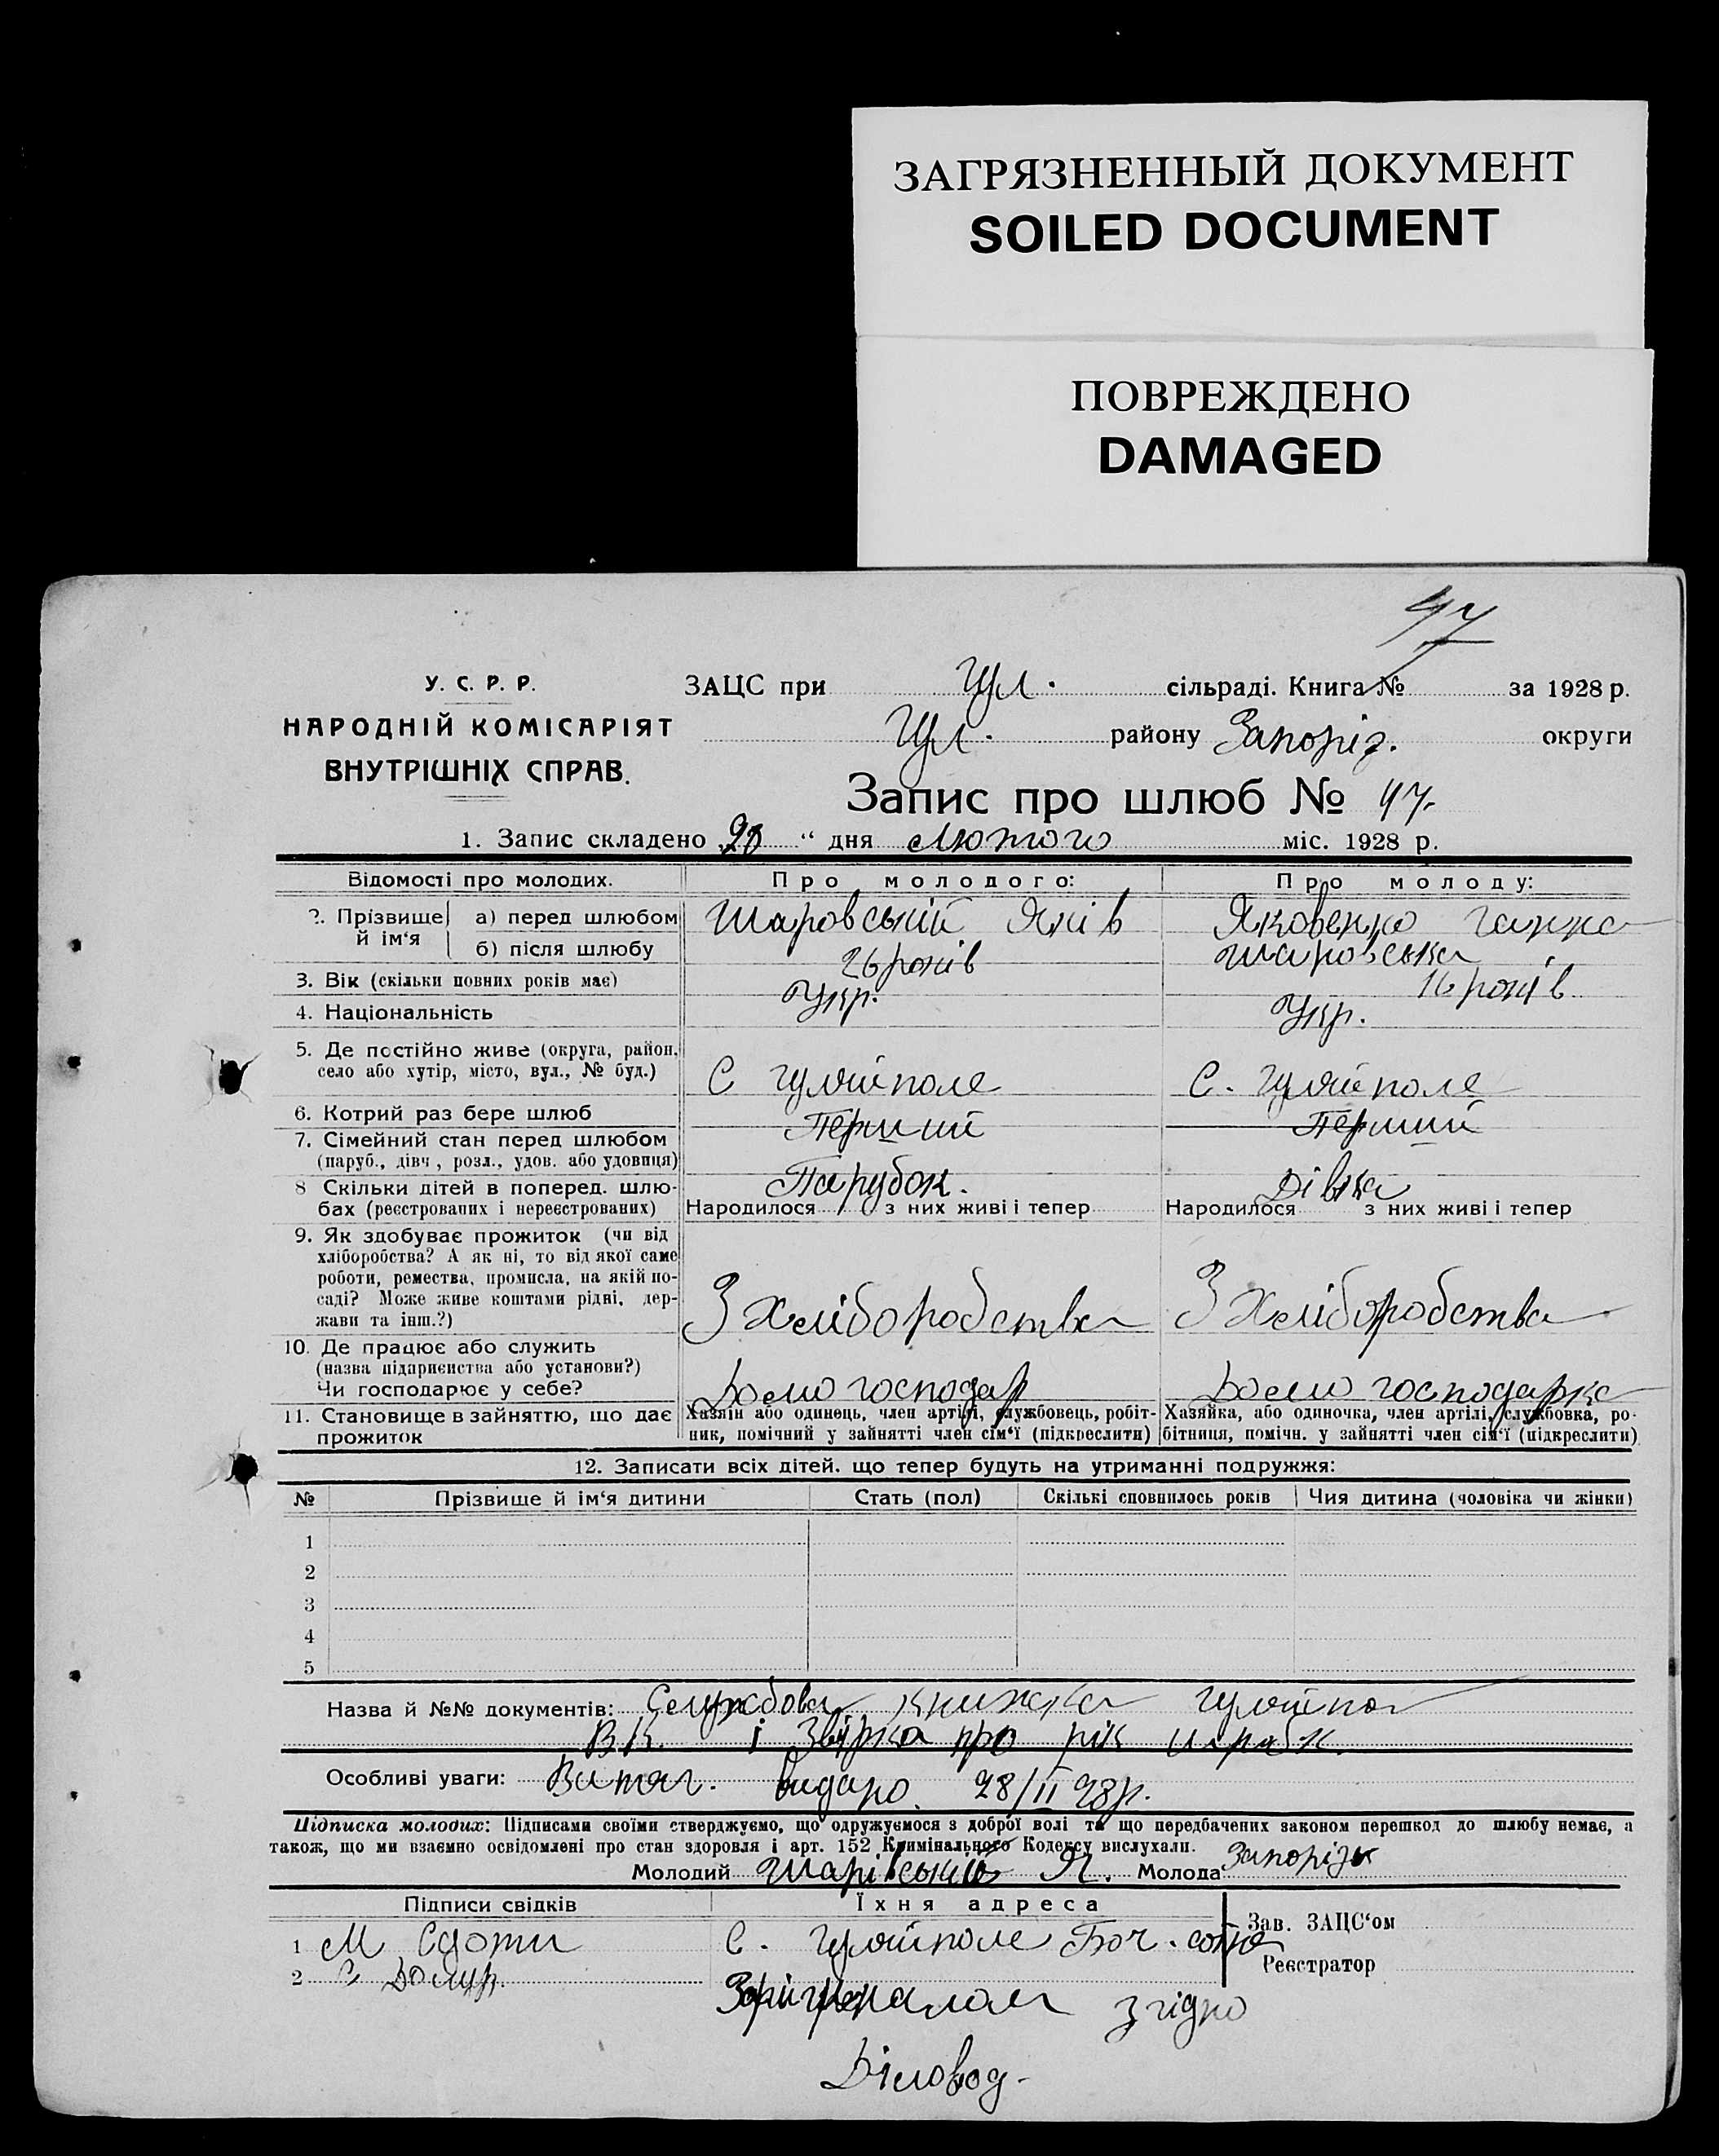 ЗАГРЯЗНЕННЫЙ ДОКУМЕНТ
SOILED DOCUMENT
ПОВРЕЖДЕНО
DAMAGED
47
У. С. Р. Р.
НАРОДНІЙ КОМІСАРІЯТ
ВНУТРІШНІХ СПРАВ.
ЗАЦС при Гул. сільраді. Книга № за 1928 р.
Гул. району Запоріз. округи
Запис про шлюб № 47.
1. Запис складено 28 " дня Лютого міс. 1928 р.
Відомості про молодих. Про молодого: Про молоду:
2. Прізвище й ім'я а) перед шлюбом Шаровський Яків Яковенко Ганна
б) після шлюбу Шаровська
3. Вік (скільки повних років має) 26 років 16 років
4. Національність Укр. Укр.
5. Де постійно живе (округа, район,
село або хутір, місто, вул., № буд.) С Гуляйполе С. Гуляйполе
6. Котрий раз бере шлюб Перший Перший
7. Сімейний стан перед шлюбом
(паруб., дівч., розл., удов. або удовиця) Парубок. Дівка
8 Скільки дітей в поперед. шлю-
бах (реєстрованих і нереєстрованих) Народилося з них живі і тепер Народилося з них живі і тепер
9. Як здобуває прожиток (чи від
хліборобства? А як ні, то від якої саме
роботи, ремества, промисла, на якій по-
саді? Може живе коштами рідні, дер-
жави та інш.?) З Хліборобства З Хліборобства
10. Де працює або служить
(назва підприємства або установи?)
Чи господарює у себе? Домогосподар Домогосподарка
11. Становище в зайняттю, що дає
прожиток
Хазяїн або одинець, член артілі, службовець, робіт-
ник, помічний у зайнятті член сім'ї (підкреслити)
Хазяйка, або одиночка, член артілі, службовка, ро-
бітниця, помічн. у зайнятті член сім'ї (підкреслити)
12. Записати всіх дітей. що тепер будуть на утриманні подружжя:
№ Прізвище й ім'я дитини Стать (пол) Скількі сповнилось років Чия дитина (чоловіка чи жінки)
1
2
3
4
5
Назва й №№ документів: Службова книжка Гуляйпол
В.К. і Звірка про рік
Особливі уваги: Витяг. видано. 28/II 28р.
Підписка молодих: Підписами своїми стверджуємо, що одружуємося з доброї волі та що передбачених законом перешкод до шлюбу немає, а
також, що ми взаємно освідомлені про стан здоровля і арт. 152 Кримінального Кодексу вислухали.
Молодий Шарівський Я. Молода
Підписи свідків Їхня адреса
1 М С. Гуляйполе Боч. сотня
2
Зав. ЗАЦС'ом
Реєстратор
згідно
Діловод-